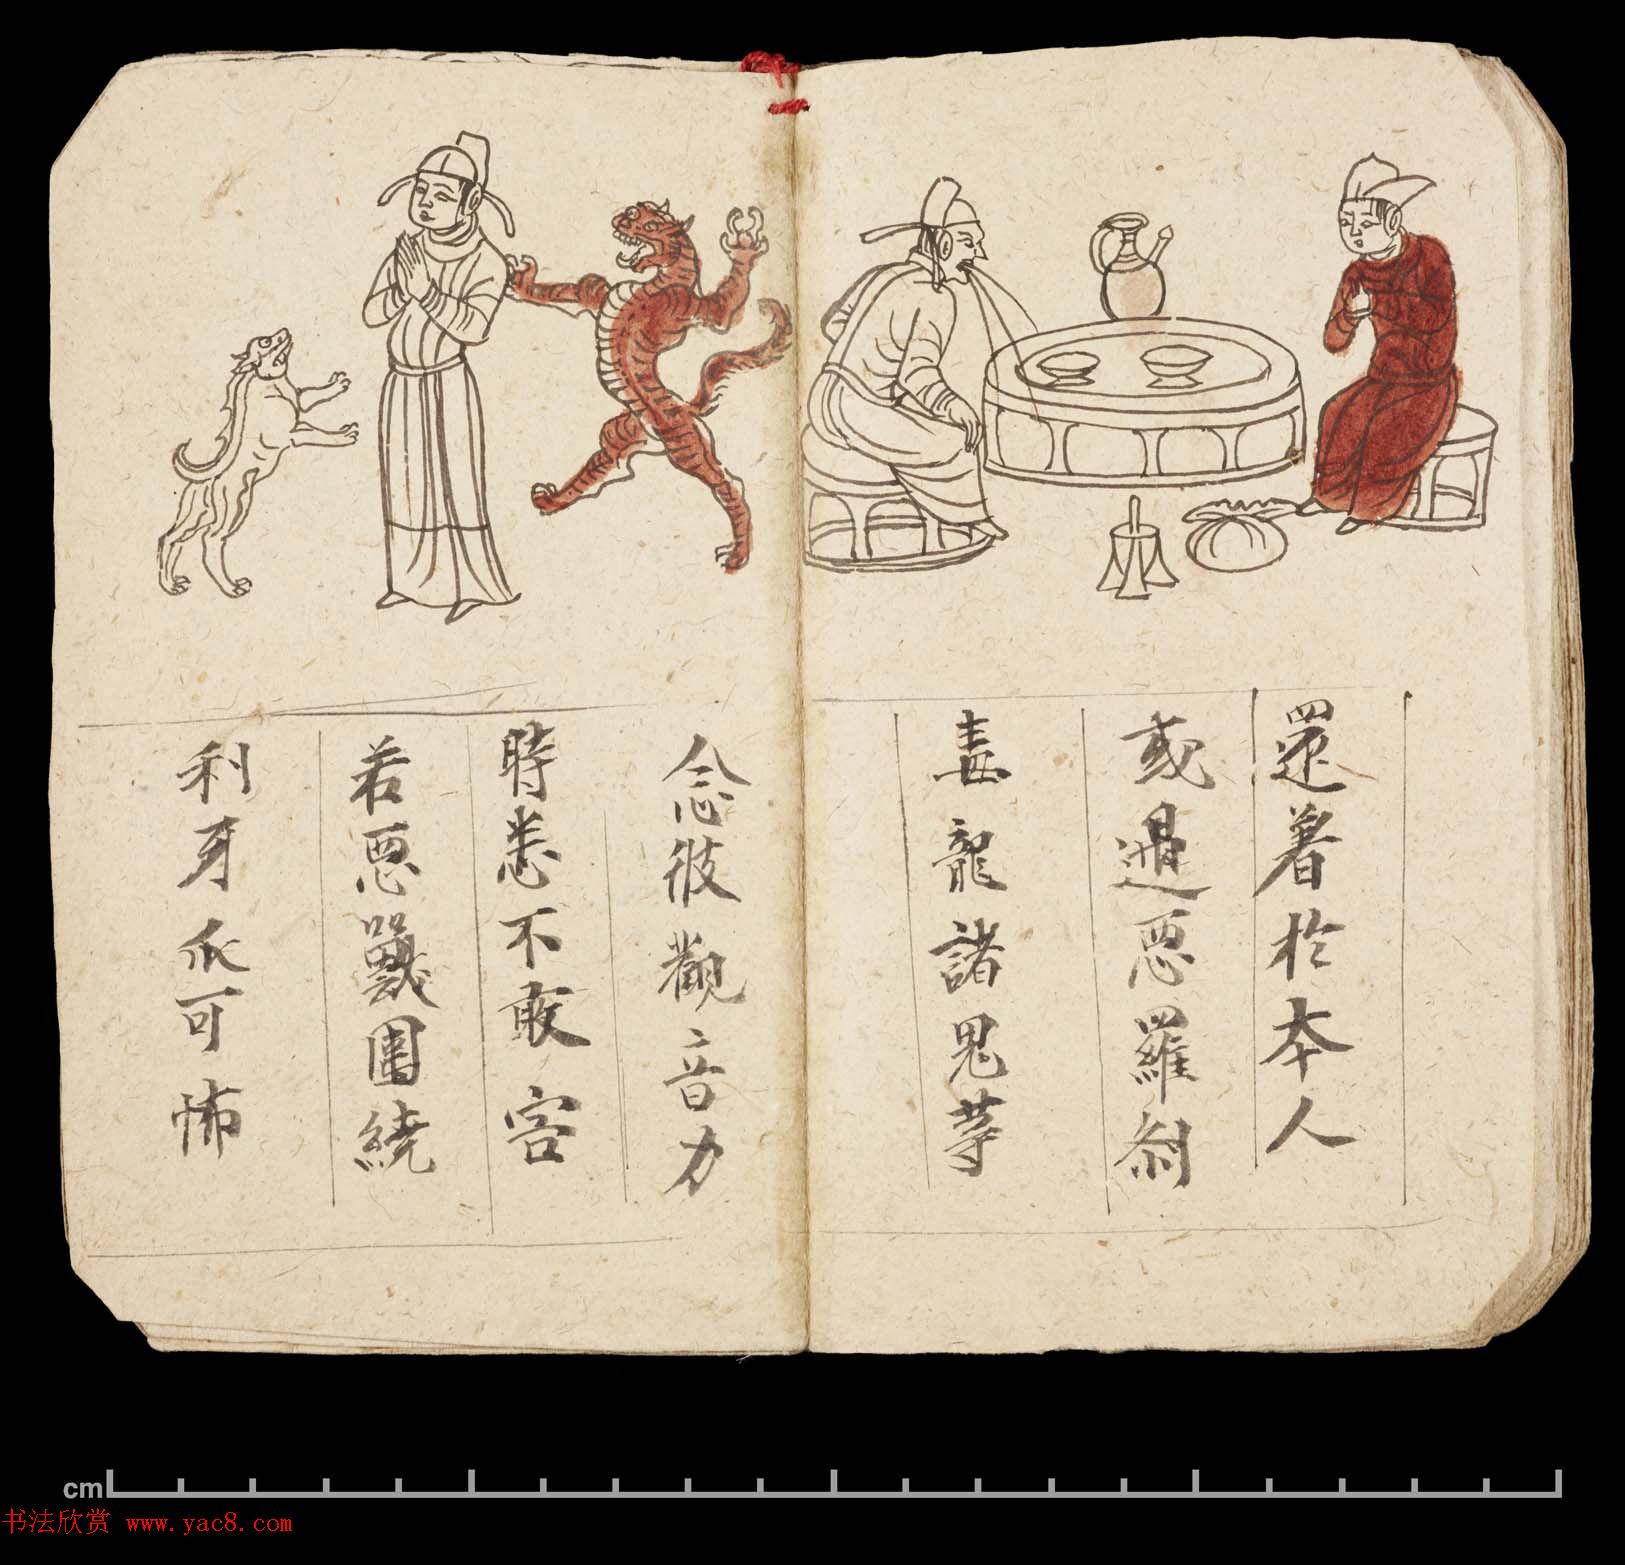 還著於本人
或遇惡羅刹
毒龍諸鬼等
念彼觀音力
時悉不敢害
若惡獸圍繞
利牙爪可怖
cm
书法欣赏 www.yac8.com